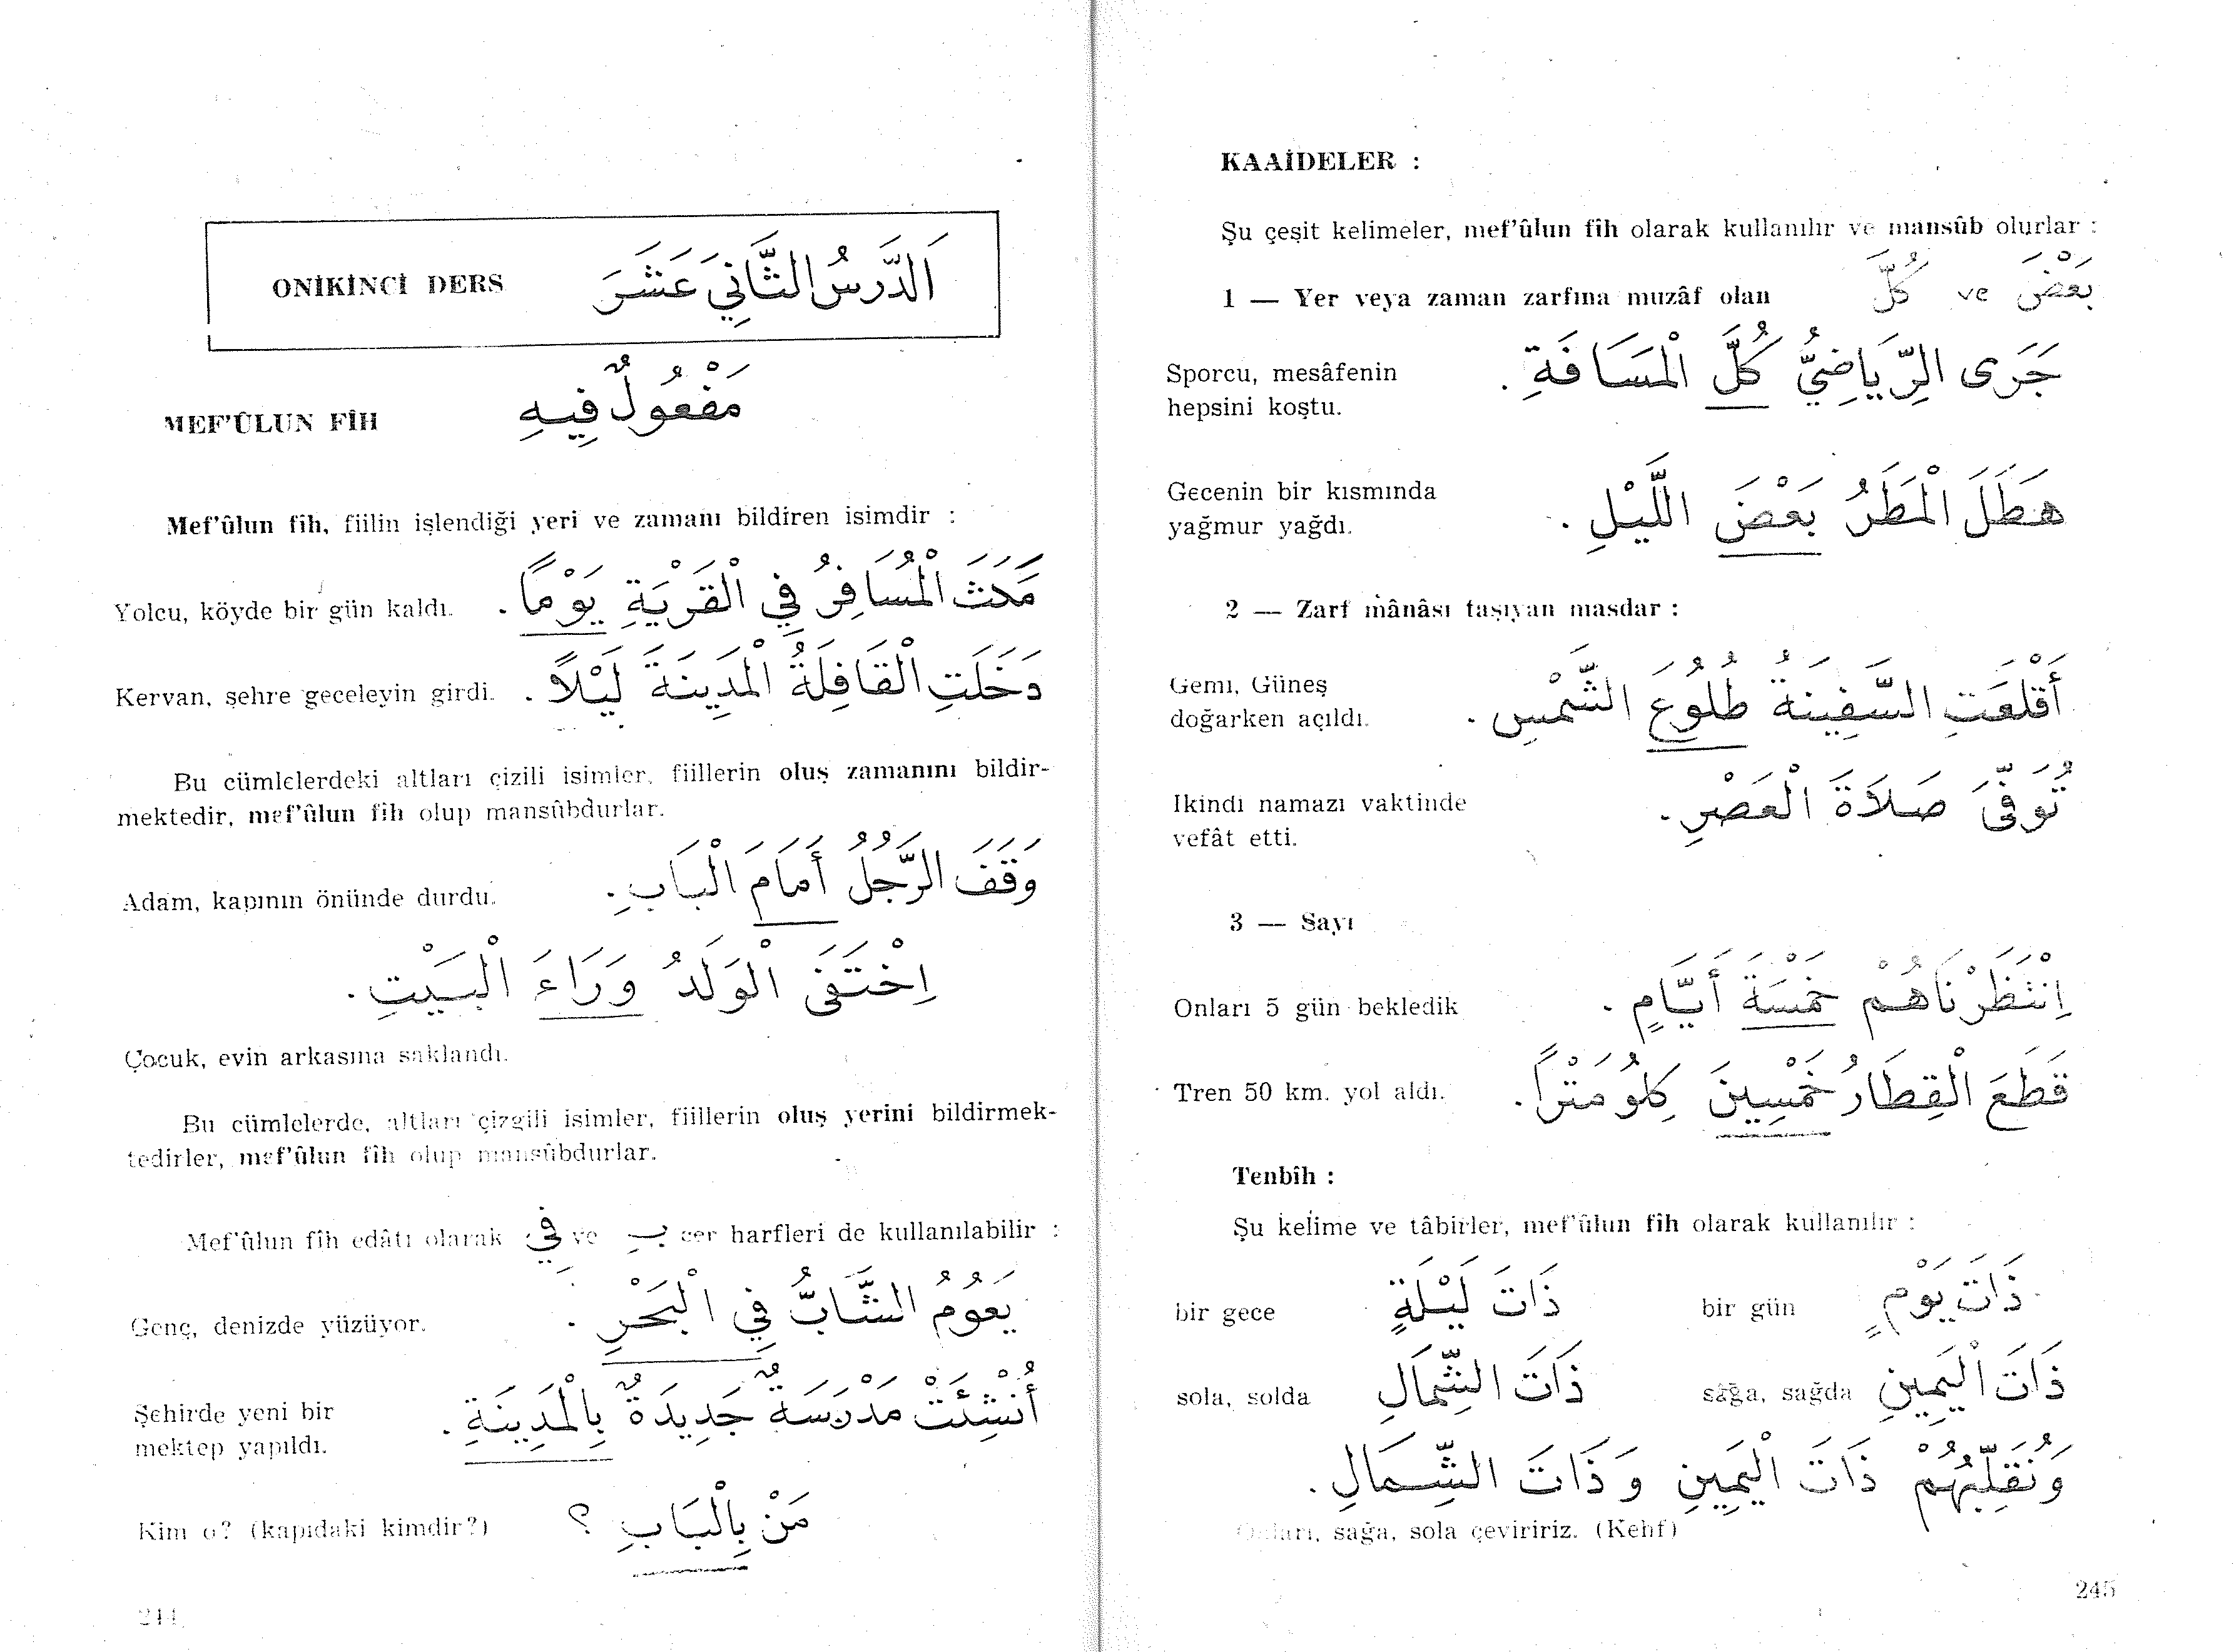 ONİKİNCİ DERS اَلدَّرْسُ الثَّانِيَ عَشَرَ
MEF'ÛLUN FÎH مَفْعُولٌ فِيهِ
Mef'ûlun fîh, fiilin işlendiği yeri ve zamanı bildiren isimdir :
Yolcu, köyde bir gün kaldı. مَكَثَ الْمُسَافِرُ فِي الْقَرْيَةِ يَوْمًا.
Kervan, şehre geceleyin girdi. دَخَلَتِ الْقَافِلَةُ الْمَدِينَةَ لَيْلًا.
Bu cümlelerdeki altları çizili isimler, fiillerin oluş zamanını bildir-
mektedir, mef'ûlun fîh olup mansûbdurlar.
Adam, kapının önünde durdu. وَقَفَ الرَّجُلُ أَمَامَ الْبَابِ.
اِخْتَفَى الْوَلَدُ وَرَاءَ الْبَيْتِ.
Çocuk, evin arkasına saklandı.
Bu cümlelerde, altları çizgili isimler, fiillerin oluş yerini bildirmek-
tedirler, mef'ûlun fîh olup mansûbdurlar.
Mef'ûlun fîh edâtı olarak فِي ve بِ cer harfleri de kullanılabilir :
Genç, denizde yüzüyor. يَعُومُ الشَّابُّ فِي الْبَحْرِ.
Şehirde yeni bir أُنْشِئَتْ مَدْرَسَةٌ جَدِيدَةٌ بِالْمَدِينَةِ.
mektep yapıldı.
Kim o? (kapıdaki kimdir?) مَنْ بِالْبَابِ ؟
244
KAAİDELER :
Şu çeşit kelimeler, mef'ûlun fîh olarak kullanılır ve mansûb olurlar :
1 — Yer veya zaman zarfına muzâf olan كُلَّ ve بَعْضَ
Sporcu, mesâfenin جَرَى الرِّيَاضِيُّ كُلَّ الْمَسَافَةِ.
hepsini koştu.
Gecenin bir kısmında هَطَلَ الْمَطَرُ بَعْضَ اللَّيْلِ.
yağmur yağdı.
2 — Zarf mânâsı taşıyan masdar :
Gemi, Güneş أَقْلَعَتِ السَّفِينَةُ طُلُوعَ الشَّمْسِ.
doğarken açıldı.
İkindi namazı vaktinde تُوُفِّيَ صَلَاةَ الْعَصْرِ.
vefât etti.
3 — Sayı
Onları 5 gün bekledik اِنْتَظَرْنَاهُمْ خَمْسَةَ أَيَّامٍ.
Tren 50 km. yol aldı. قَطَعَ الْقِطَارُ خَمْسِينَ كِلُومَتْرًا.
Tenbîh :
Şu kelime ve tâbirler, mef'ûlun fîh olarak kullanılır :
bir gece ذَاتَ لَيْلَةٍ bir gün ذَاتَ يَوْمٍ
sola, solda ذَاتَ الشِّمَالِ sağa, sağda ذَاتَ الْيَمِينِ
وَنُقَلِّبُهُمْ ذَاتَ الْيَمِينِ وَذَاتَ الشِّمَالِ.
Onları, sağa, sola çeviririz. (Kehf)
245